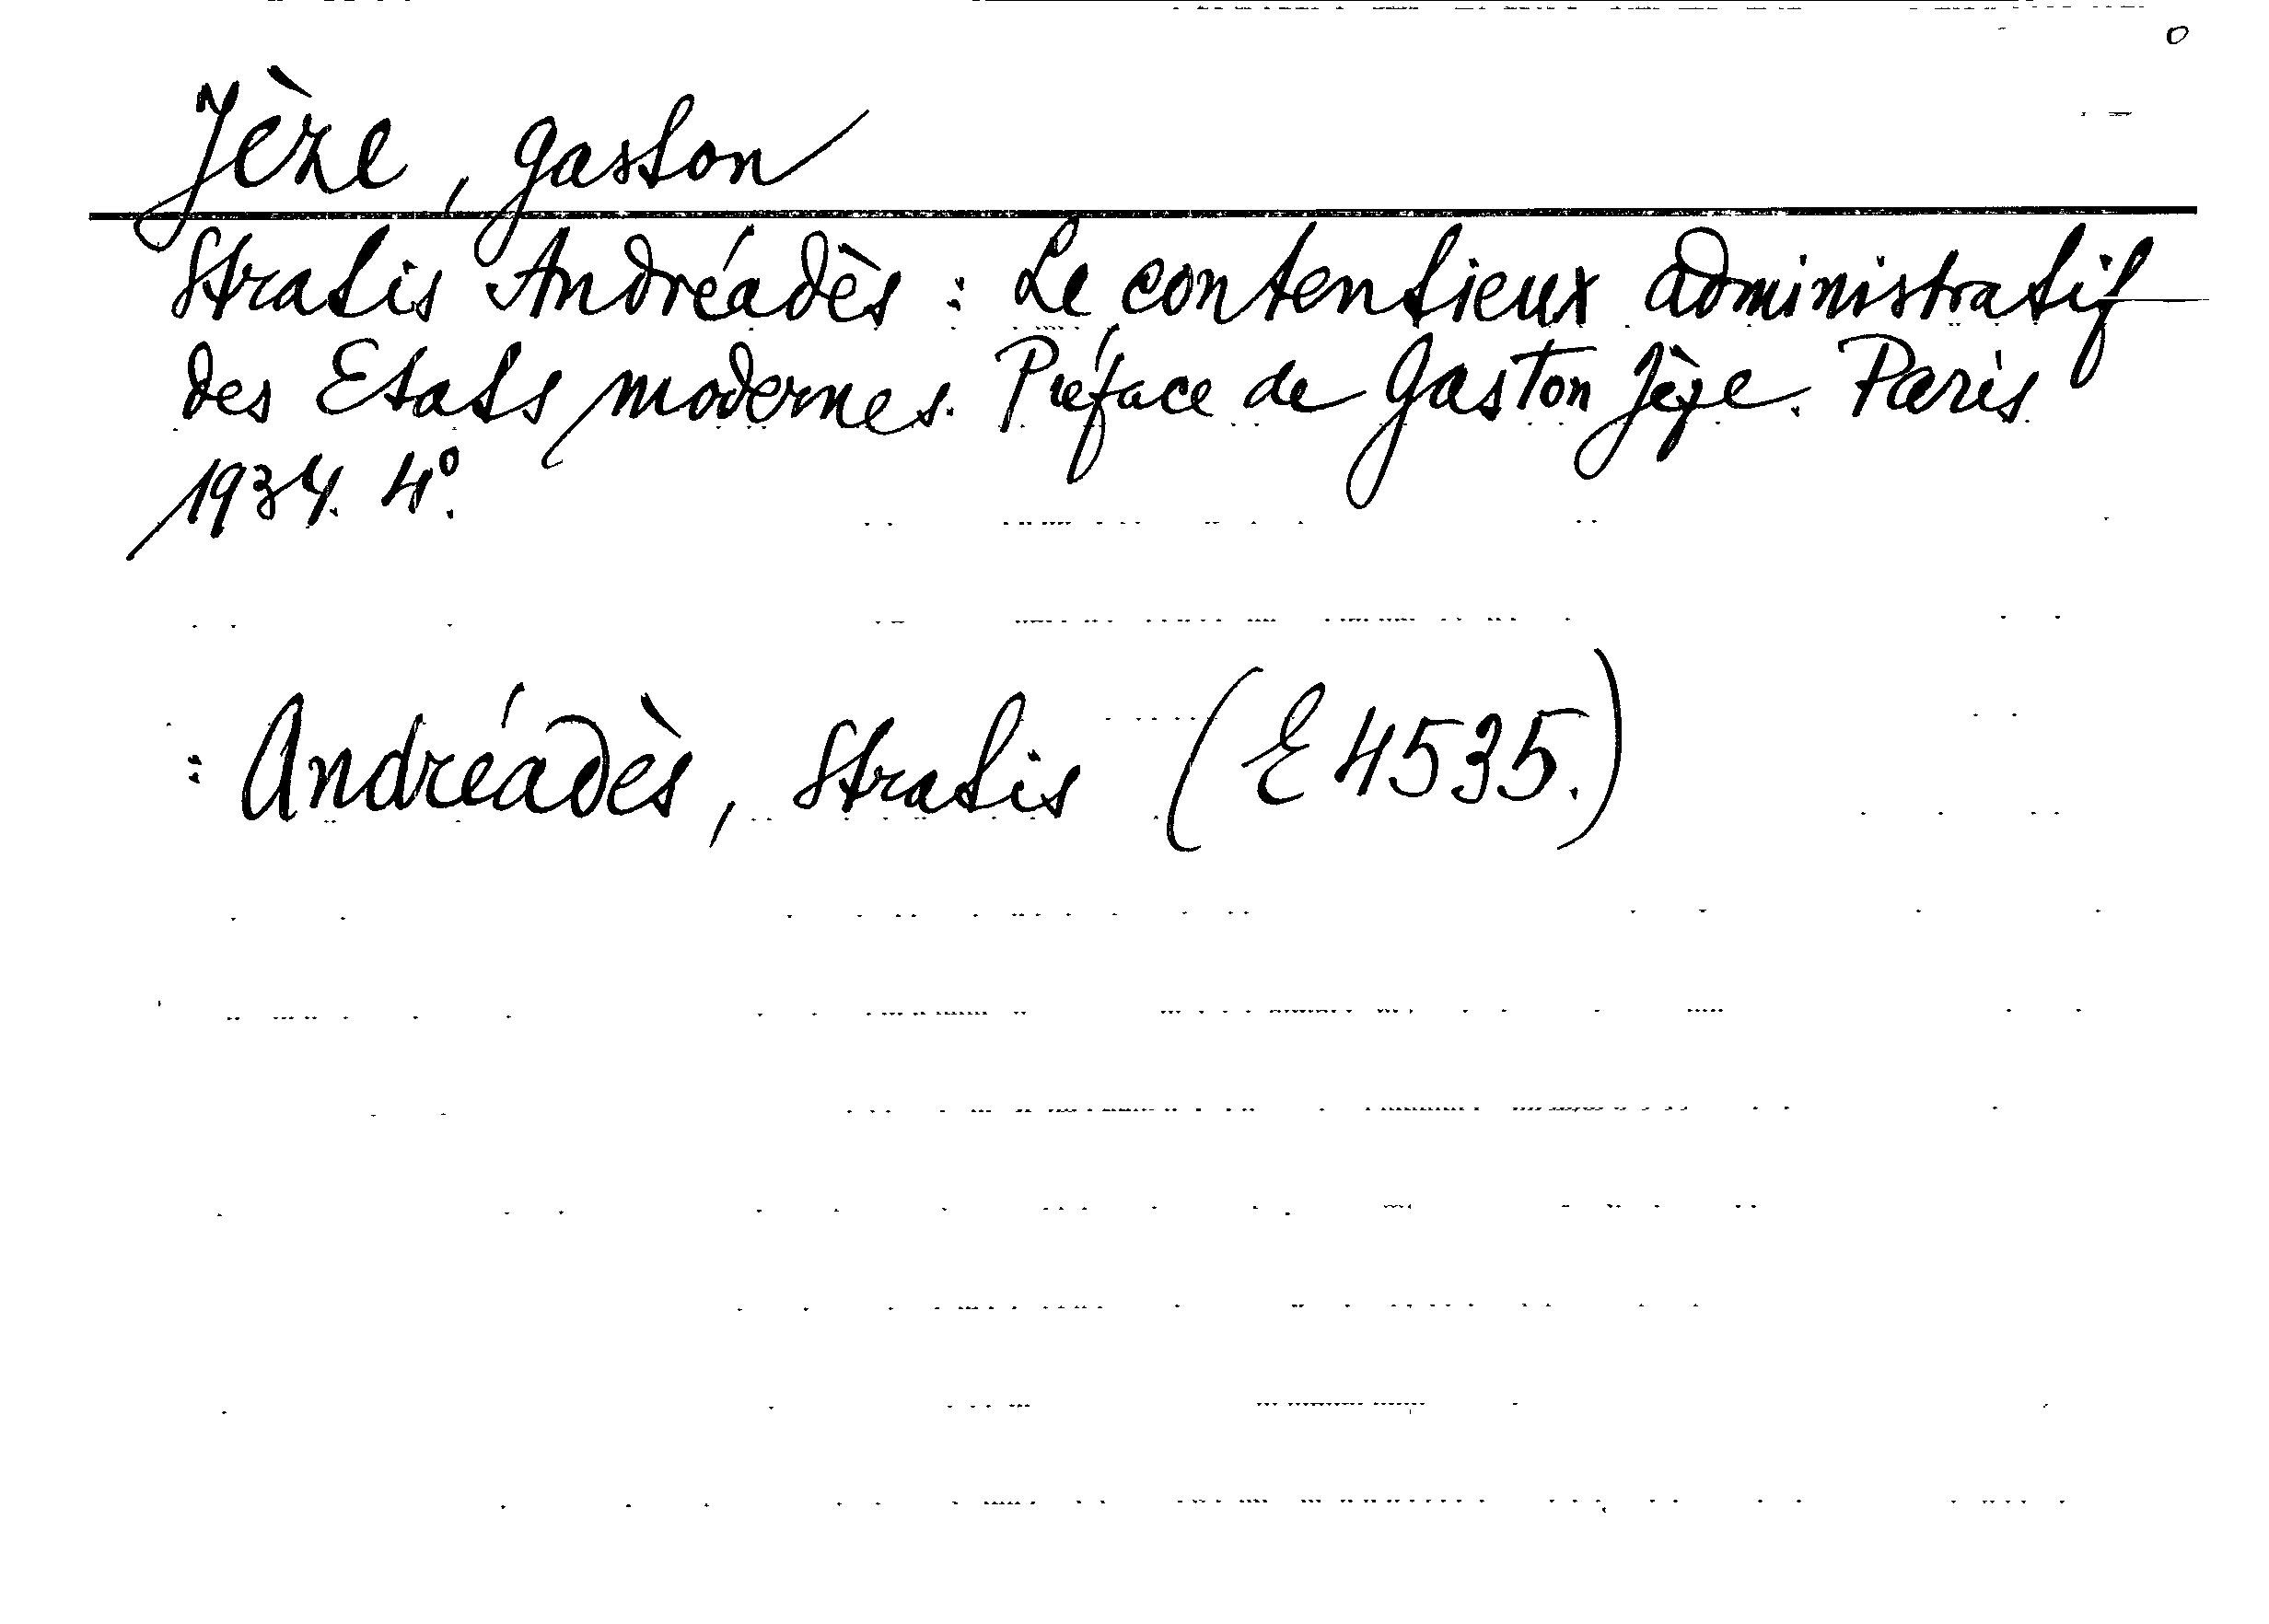 Jèze, Gaston
Stratis Andréadès : Le contentieux administratif
des Etats modernes. Préface de Gaston Jèze. Paris
1934. 4°.
: Andréadès, Stratis (E 4535.)